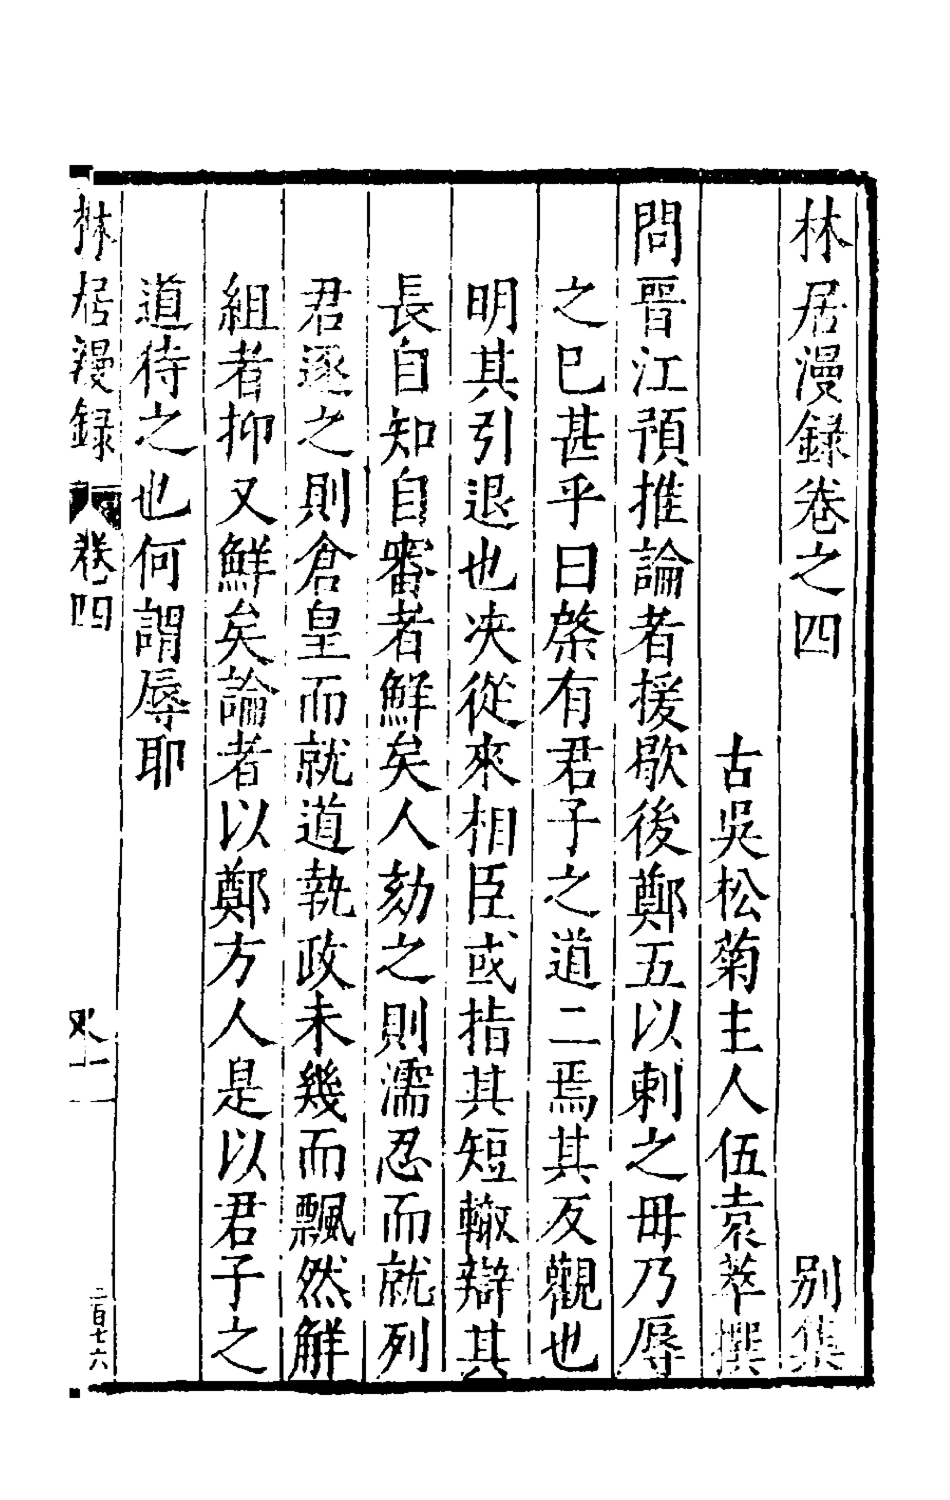 林居漫録卷之四　別集
古吳松菊主人伍袁萃撰
問晉江預推論者援歇後鄭五以刺之毋乃辱
之已甚乎曰棨有君子之道二焉其反觀也
明其引退也决從來相臣或指其短輙辯其
長自知自審者鮮矣人劾之則濡忍而就列
君逐之則倉皇而就道執政未幾而飄然觧
組者抑又鮮矣論者以鄭方人是以君子之
道待之也何謂辱耶
林居漫録
卷四
二百七六